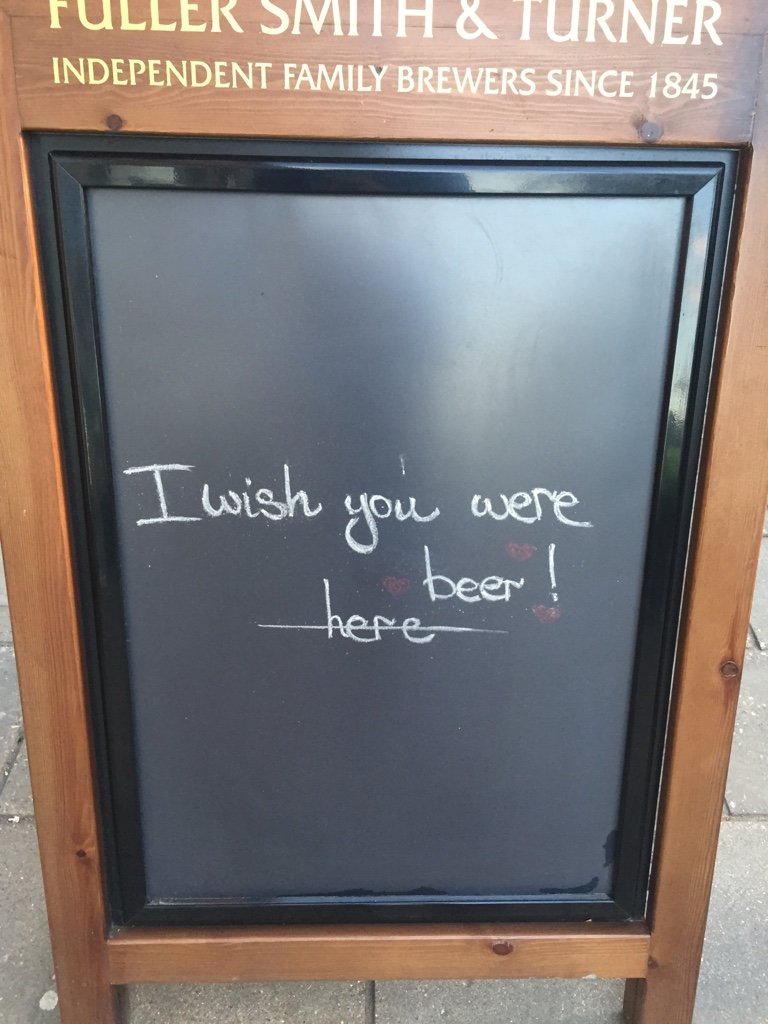 FULLER SMITH & TURNER
INDEPENDENT FAMILY BREWERS SINCE 1845
I wish you were
beer!
here